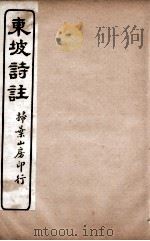 東坡詩註
掃葉山房印行